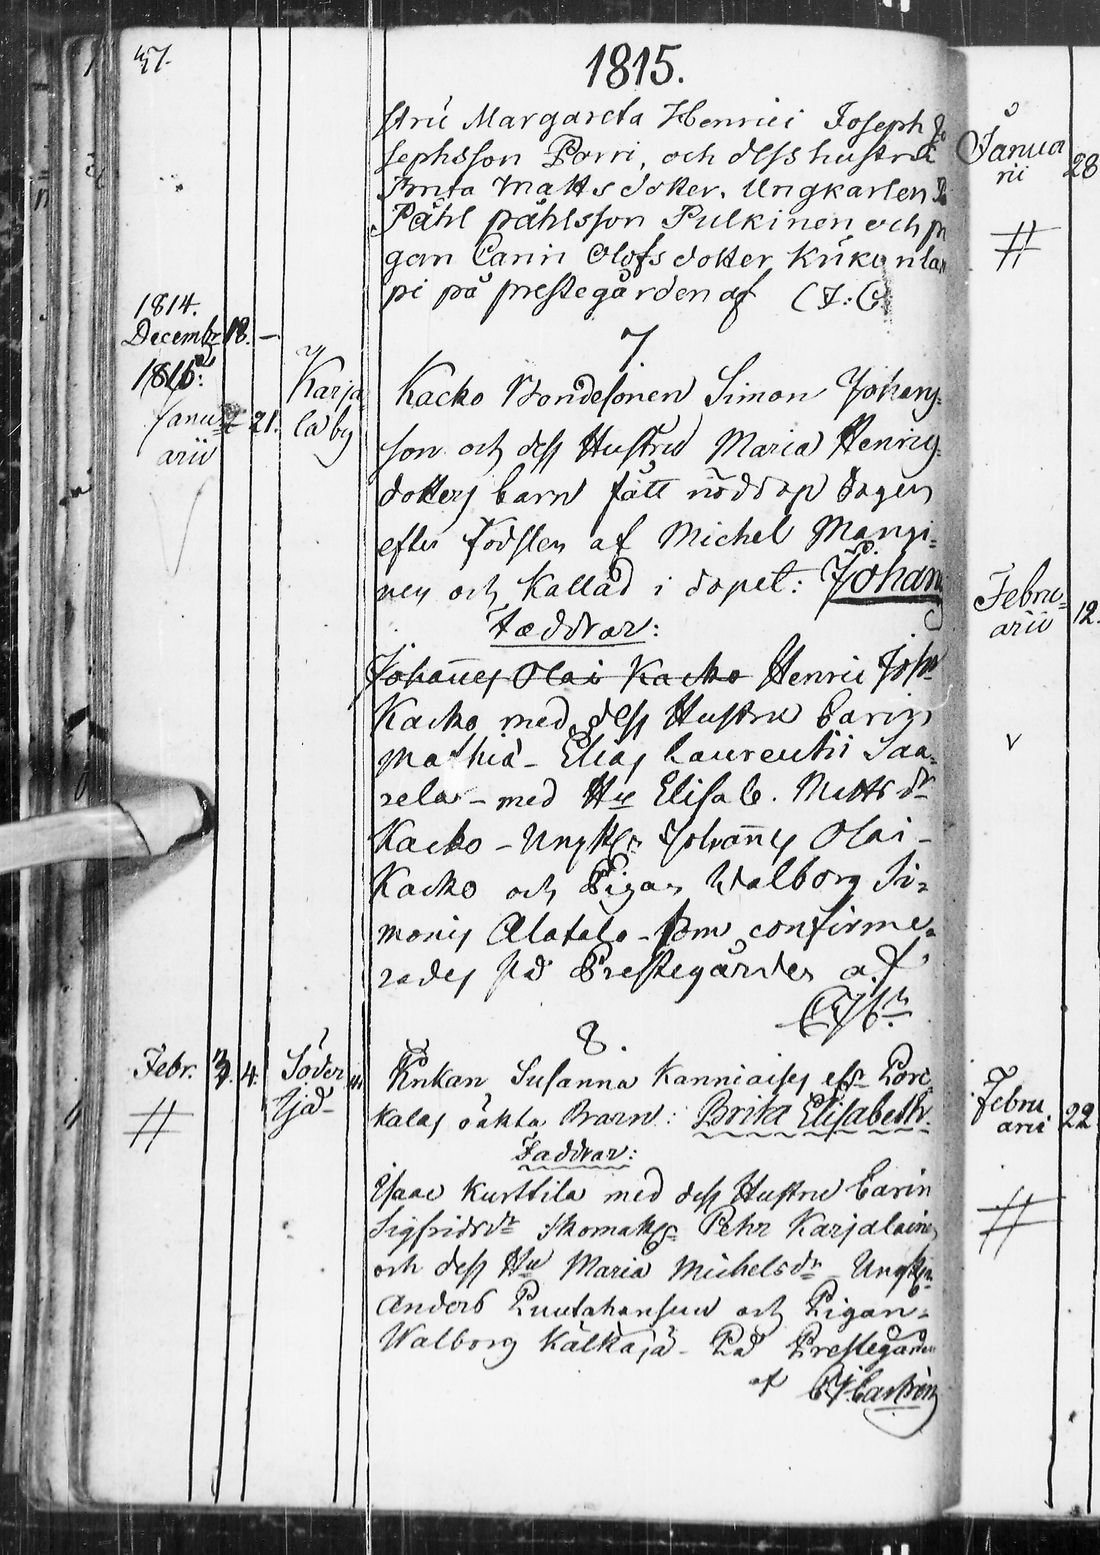 47.
1815.
stru Margareta Henrici Joseph Jo
sephsson Porri, och dess hustru
Brita Mattsdotter. Ungkarlen
Påhl påhlsson Pulkinen och pi
gan Carin Olofsdotter Kukonlam
pi på prestegården af
7.
1814.
Decembr 18. –
1815
Janu
arii
21.
Karja
la by
Kacko Bondesonen Simon Johans
son och dess Hustru Maria Henrics
dotters barn fått nöddop dagen
efter födslen af Michel Mangi=
nen och kallad i dopet: Johan
Faddrar:
Johannes Olai Kacko Henric Josph
Kacko med dess Hustru Carin
Mathiæ – Elias Laurentii Saa=
rela – med Hu Elisab. Matts dr
Kacko – Ungk Johannes Olai –
Kacko och Pigan Walborg Si=
monis Alatalo – som confirme=
rades på Prestegården af
8.
Febr. 3. 4.
Söder
Enkan Susanna Kanniaises
kalas oäkta Barn: Brita Elisabeth.
Faddrar:
Isaac Kurttila med dess Hustru Carin
Sigfridsdr Skomak Pehr Karjalainen
och dess Hu Maria Michelsdr – Ungk
Anders och Pigan
Walborg Kälkäjä – På Prestegården
af CJ Castrén
Janua
rii
28
#
Febru=
arii
12.
v
Febru
arii
22
#